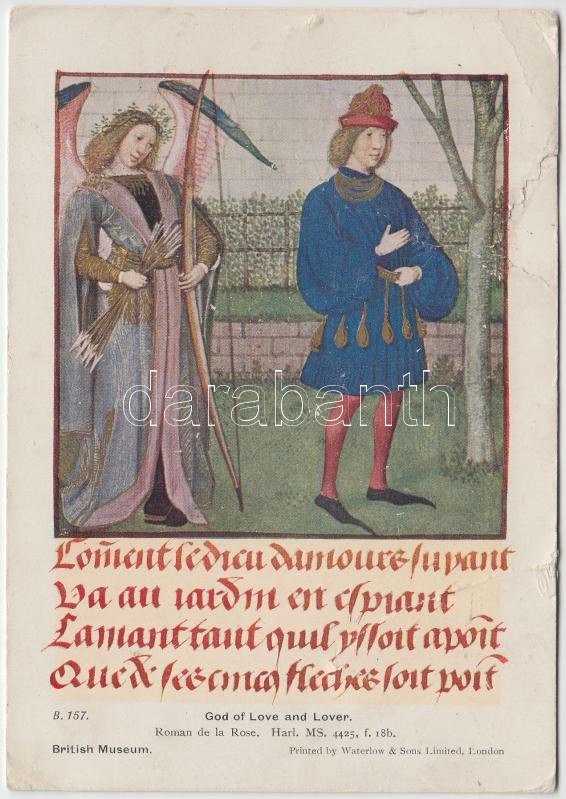 darabanth
Com̃ent le dieu damours suyant
Va au iardin en espiant
Lamant tant quil yssoit a poĩt
Que de ses cincq fleches soit poĩt
B. 157.
God of Love and Lover.
Roman de la Rose. Harl. MS. 4425, f. 18b.
British Museum.
Printed by Waterlow & Sons Limited, London